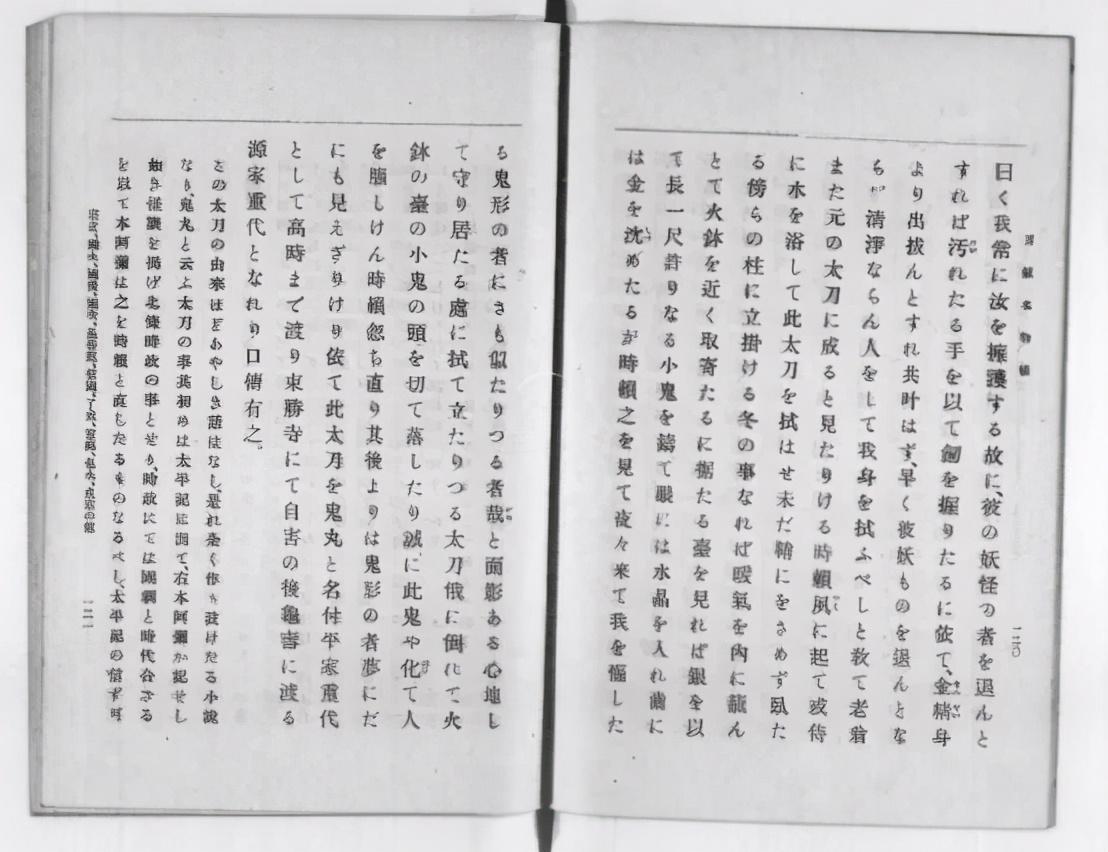 曰く我常に汝を擁護する故に、彼の妖怪の者を退んと
すれば汚れたる手を以て劔を握りたるに依て、金精身
より出拔んとすれ共叶はず、早く彼妖ものを退んとな
らば清淨ならん人をして我身を拭ふべしと敎て老翁
また元の太刀に成ると見たりける時賴夙に起て
に水を浴して此太刀を拭はせ未だ鞘にをさめず臥た
る傍らの柱に立掛ける冬の事なれば暖氣を內に籠ん
とて火鉢を近く取寄たるに据たる臺を見れば銀を以
て長一尺許りなる小鬼を鑄て眼には水晶を入れ齒に
は金を沈めたるが時賴之を見て夜々來て我を惱した
一二〇
る鬼形の者にさも似たりつる者哉と面影ある心地し
て守り居たる處に拭て立たりつる太刀俄に倒れて火
鉢の臺の小鬼の頭を切て落したり誠に此鬼や化て人
を惱しけん時賴忽ち直り其後よりは鬼影の者夢にだ
にも見えざりけり依て此太刀を鬼丸と名付平家重代
として高時まで渡り東勝寺にて自害の後龜壽に渡る
源家重代となれり口傳有之。
この太刀の由來ほどあやしき
なり、鬼丸と云ふ太刀の事其初めは太平記に出て、右本阿彌が記せし
如き を揚げ北條時政の事とせり、時政にては國綱と時代合ざる
を以て本阿彌は之を時賴と直したるものなるべし、太平記の信ず可
一二一